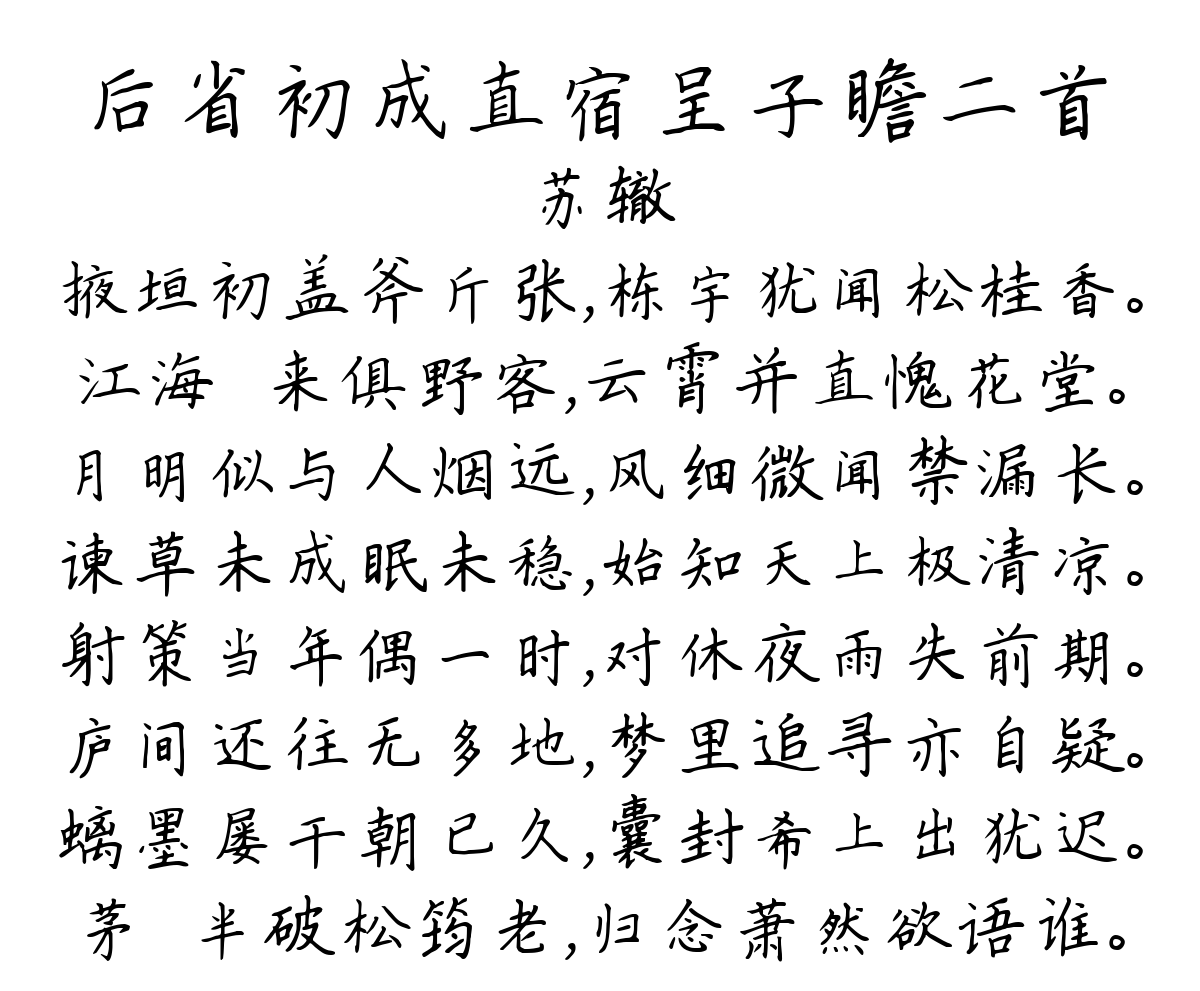 后省初成直宿呈子瞻二首
苏辙
掖垣初盖斧斤张,栋宇犹闻松桂香。
江海 来俱野客,云霄并直愧花堂。
月明似与人烟远,风细微闻禁漏长。
谏草未成眠未稳,始知天上极清凉。
射策当年偶一时,对休夜雨失前期。
庐间还往无多地,梦里追寻亦自疑。
螭墨屡干朝已久,囊封希上出犹迟。
茅 半破松筠老,归念萧然欲语谁。